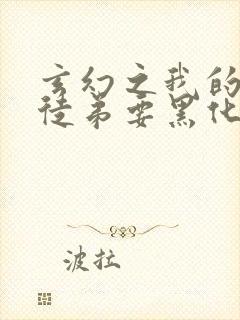 玄幻之我的
徒弟要黑化
波拉